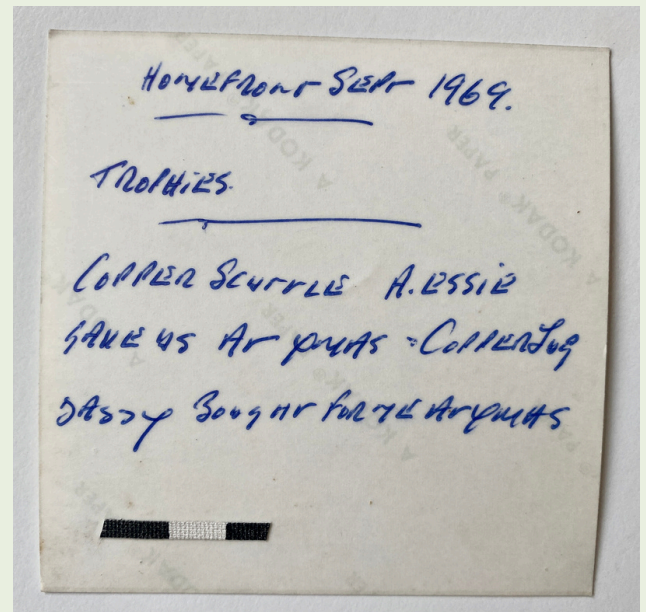 HOMEFRONT SEPT 1969.
TROPHIES.
COPPER SCUTTLE A. ESSIE
GAVE US AT XMAS COPPER JUG
DADDY BOUGHT FOR ME AT XMAS
A KODAK® PAPER
A KODAK® PAPER
A KODAK